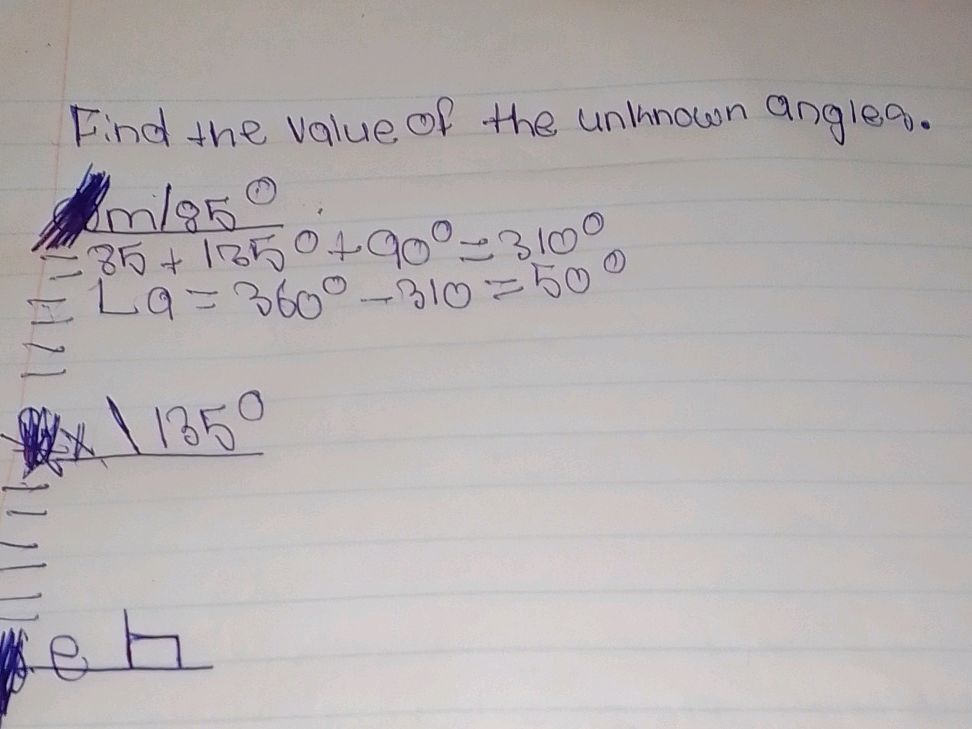 Find the value of the unknown angles.
m/85°
= 85 + 135° + 90° = 310°
= La = 360° - 310 = 50°
x \ 135°
e